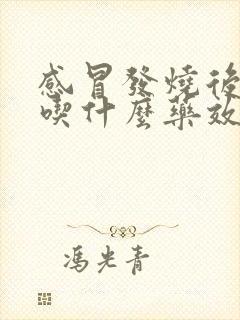 感冒發燒後
喫什麼藥效
馮光青